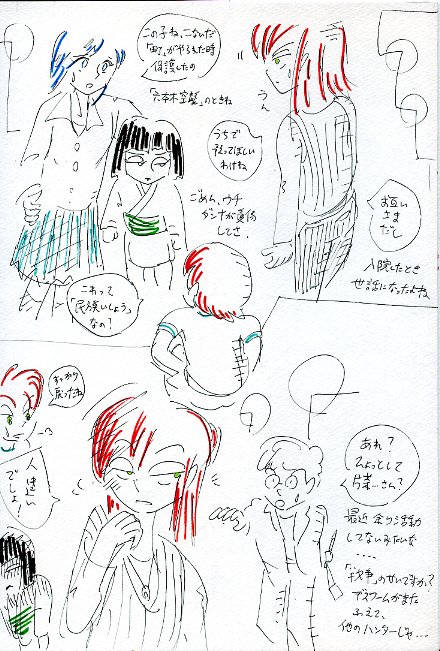 この子ね、こないだ
「町」がやられた時
保護したの
「六本木空襲」のときね
うん
うちで
って ほしい
わけね
ごめん、ウチ
してさ、
お互い
さま
だし
入院したとき
世話になったよね
これって
「民族いしょう」
なの？
すっかり
戻ったね
人違い
でしょ！
あれ？
ひょっとして
さん？
最近 余り活動
してないみたいな
‥‥
「戦争」のせいですか？
デスワームがまた
ふえて、
他のハンターじゃ‥‥